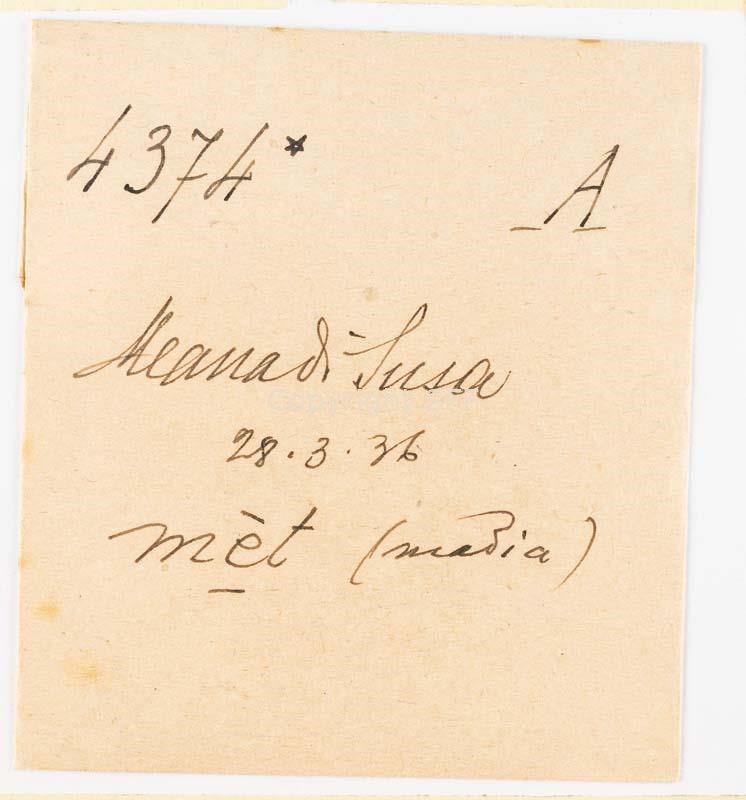 4374* A
Meana di Susa
28.3.36
mẹ̀t (madia)